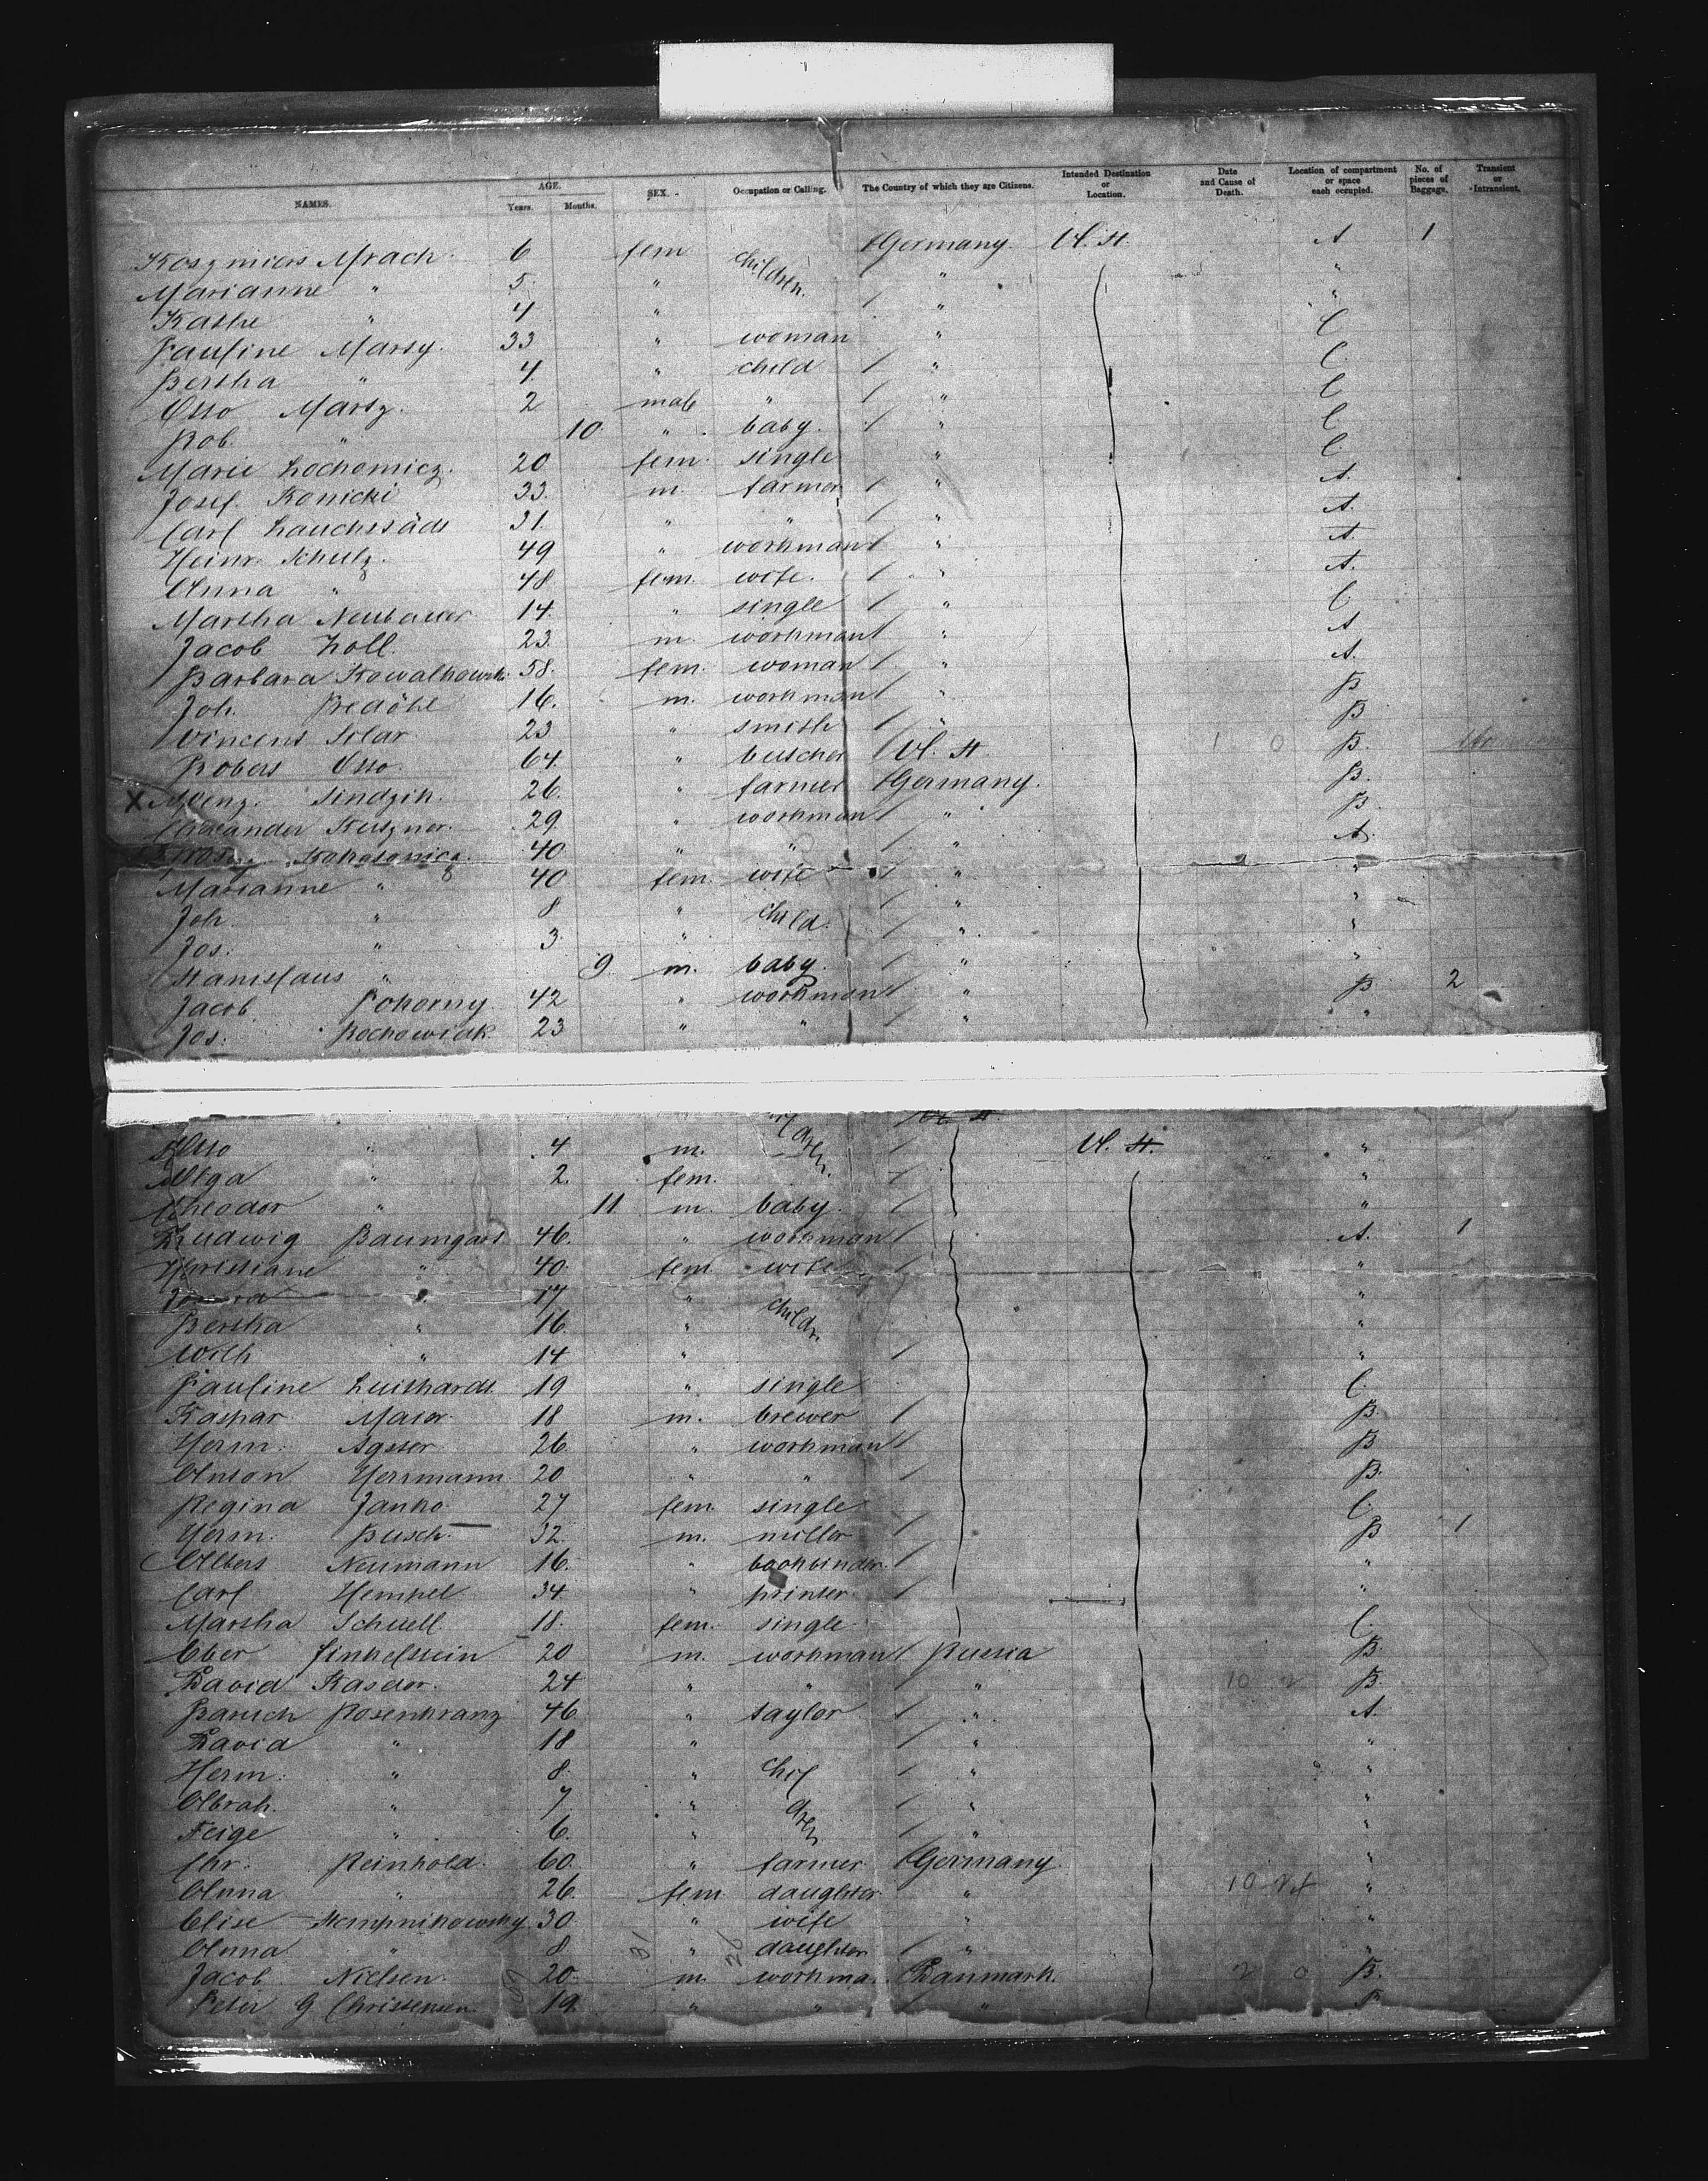 NAMES. AGE. Years. Months. SEX. Occupation or Calling. The Country of which they are Citizens. Intended Destination or Location. Date and Cause of Death. Location of compartment or space each occupied. No. of pieces of Baggage. Transient or Intransient.
Kaszmiers Mrach. 6 fem children. Germany. U. St. A 1
Marianne " 5. " " "
Kathe " 4 " " "
Pauline Marsy. 33 " woman " C
Bertha " 4. " child " C.
Otto Martz. 2 male " " C
Rob. " 10 " baby. " C
Marie Lochomicz. 20 fem. single " C.
Josef Konicki 33. m. farmer " A.
Carl Lauchstädt 31. " " " A.
Heinr. Schulz. 49 " workman " A.
Anna " 48 fem. wife. " A.
Martha Neubauer 14. " single " C.
Jacob Zoll. 23. m. workman " A
Barbara Kowalkowski 58. fem. woman " A.
Joh. Predöhl 16. m. workman " B
Vincent Solar 23 " smith " B
Robert Otto. 64. " butcher U. St 1 0 B.
X Wenz. Sindzik. 26. " farmer Germany. B.
Alexander Kutzner. 29. " workman " B.
Kokosonicz. 40 " " " A.
Marianne " 40 fem. wife " "
Joh. " 8 " child. " "
Jos. " 3. " " "
Stanislaus " 9. m. baby. " "
Jacob. Pohorny. 42 " workman " B 2
Jos. Rochowiak. 23 " " " "
Otto " 4 m. U. St. "
Olga " 2. fem. "
Theodor " 11 m. baby. "
Ludwig Baumgart 46. " workman A. 1
Christiane " 40. fem wife "
" 17 " childr. "
Bertha " 16. " "
Wilh " 14 " "
Pauline Luithardt 19 " single C.
Kaspar Maior 18 m. brewer B.
Herm. Agster 26. " workman B
Anton Herrmann 20 " " B.
Regina Janko 27 fem. single C.
Herm. Busch. 32 m. miller B 1
Albert Neumann 16. " bookbinder "
Carl Hempel 34. " printer "
Martha Schuell 18. fem. single C.
Eber Finkelstein 20 m. workman Russia B.
David Kasdor. 24 " " " 10 B.
Baruch Rosenkranz 46. " taylor " A.
David " 18 " " "
Herm. " 8. " children " "
Abrah. " 7 " " "
Feige " 6. " " "
Chr. Reinhold. 60. " farmer Germany "
Anna " 26. fem. daughter " 10 "
Elise Stempnikowsky. 30 " wife " "
Anna " 8 31 " 26 daughter " "
Jacob Nielsen. 20. m. workma. Danmark. 2 0 B.
Peter G Christensen. 19. " " "